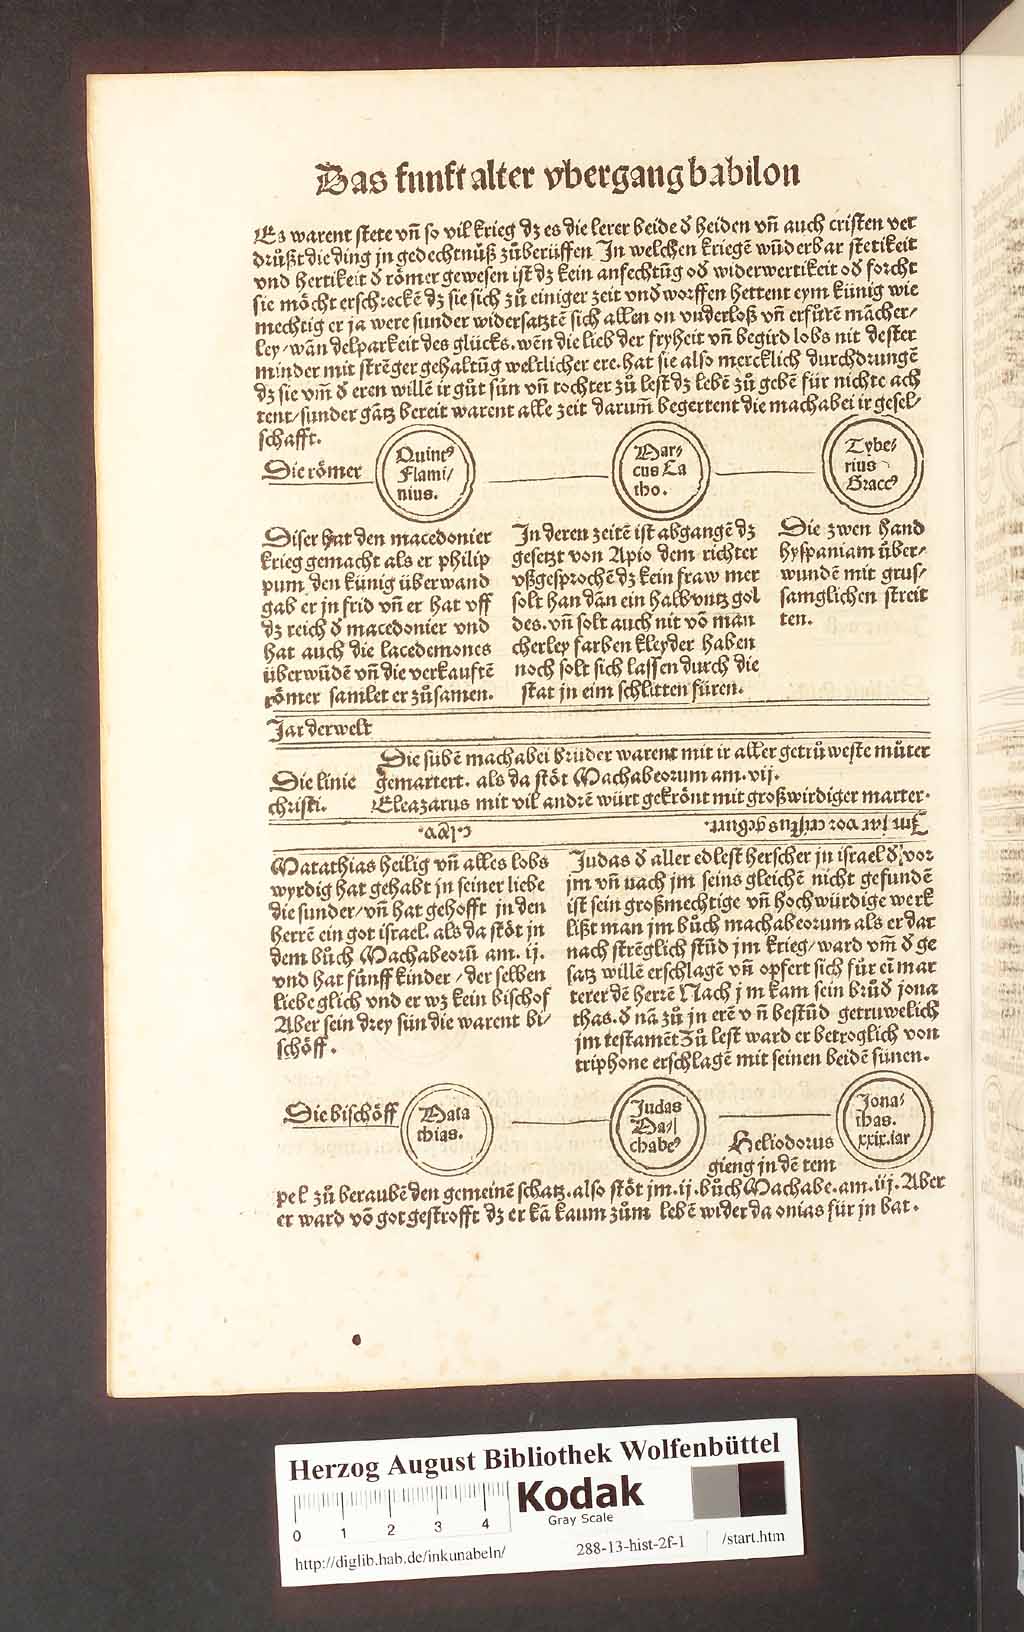 Das funft alter vbergang babilon
Es warent stete vn̄ so vil krieg dz es die lerer beide d̕ heiden vn̄ auch cristen ver
drüßt die ding jn gedechtnüß zůberüffen In welchen kriegē wūderbar stetikeit
vnd hertikeit d̕ römer gewesen ist dz kein anfechtūg od̕ widerwertikeit od̕ forcht
sie möcht erschreckē dz sie sich zů einiger zeit vnd̕worffen hettent eym künig wie
mechtig er ja were sunder widersatztē sich allen on vnderloß vn̄ erfůrē mācher/
ley/wān delparkeit des glücks. wēn die lieb der fryheit vn̄ begird lobs nit dester
minder mit strēger gehaltūg weltlicher ere. hat sie also mercklich durchdrungē
dz sie vm̄ d̕ eren willē ir gůt sün vn̄ tochter zů lest dz lebē zů gebē für nichte ach
tent/sunder gātz bereit warent alle zeit darum̄ begertent die machabei ir gesel/
schafft.
Die römer
Quintꝰ
Flami/
nius.
Mar/
cus Ca
tho.
Tybe/
rius
Graccꝰ
Diser hat den macedonier
krieg gemacht als er philip
pum den künig überwand
gab er jn frid vn̄ er hat vff
dz reich d̕ macedonier vnd
hat auch die lacedemones
überwūdē vn̄ die verkaufftē
römer samlet er zůsamen.
In deren zeitē ist abgangē dz
gesetzt von Apio dem richter
vßgesprochē dz kein fraw mer
solt han dān ein halb vntz gol
des. vn̄ solt auch nit vō man
cherley farben kleyder haben
noch solt sich lassen durch die
stat jn eim schlitten füren.
Die zwen hand
hyspaniam über/
wundē mit grus/
samglichen streit
ten.
Jar der welt
Die sübē machabei brüder warent mit ir aller getrůweste můter
Die linie gemartert. als da stöt Machabeorum am. vij.
christi. Eleazarus mit vil andrē würt gekrönt mit großwirdiger marter.
Im jar vor cristus geburt.
Matathias heilig vn̄ alles lobs
wyrdig hat gehabt jn seiner liebe
die sunder/vn̄ hat gehofft jn den
herrē ein got israel. als da stöt jn
dem bůch Machabeorū am. ij.
vnd hat fünff kinder/der selben
liebe glich vnd er wz kein bischof
Aber sein drey sün die warent bi/
schöff.
Judas d̕ aller edlest herscher jn israel d̕ vor
jm vn̄ nach jm seins gleichē nicht gefundē
ist sein großmechtige vn̄ hochwürdige werk
lißt man jm bůch machabeorum als er dar
nach strēglich stūd jm krieg/ward vm̄ d̕ ge
satz willē erschlagē vn̄ opfert sich für eī mar
terer dē herrē Nach jm kam sein brůd̕ jona
thas. d̕ nā zů jn erē vn̄ bestūd getruwelich
jm testamēt Zů lest ward er betroglich von
triphone erschlagē mit seinen beidē sünen.
Die bischöff
Mata
thias.
Judas
Ma/
chabeꝰ
Jona/
thas.
xxix.iar
Heliodorus
gieng jn dē tem
pel zů beraubē den gemeinē schatz. also stöt jm. ij. bůch Machabe. am. iij. Aber
er ward vō got gestrofft dz er kā kaum zům lebē wider da onias für jn bat.
Herzog August Bibliothek Wolfenbüttel
0 1 2 3 4
Kodak
Gray Scale
http://diglib.hab.de/inkunabeln/
288-13-hist-2f-1
/start.htm